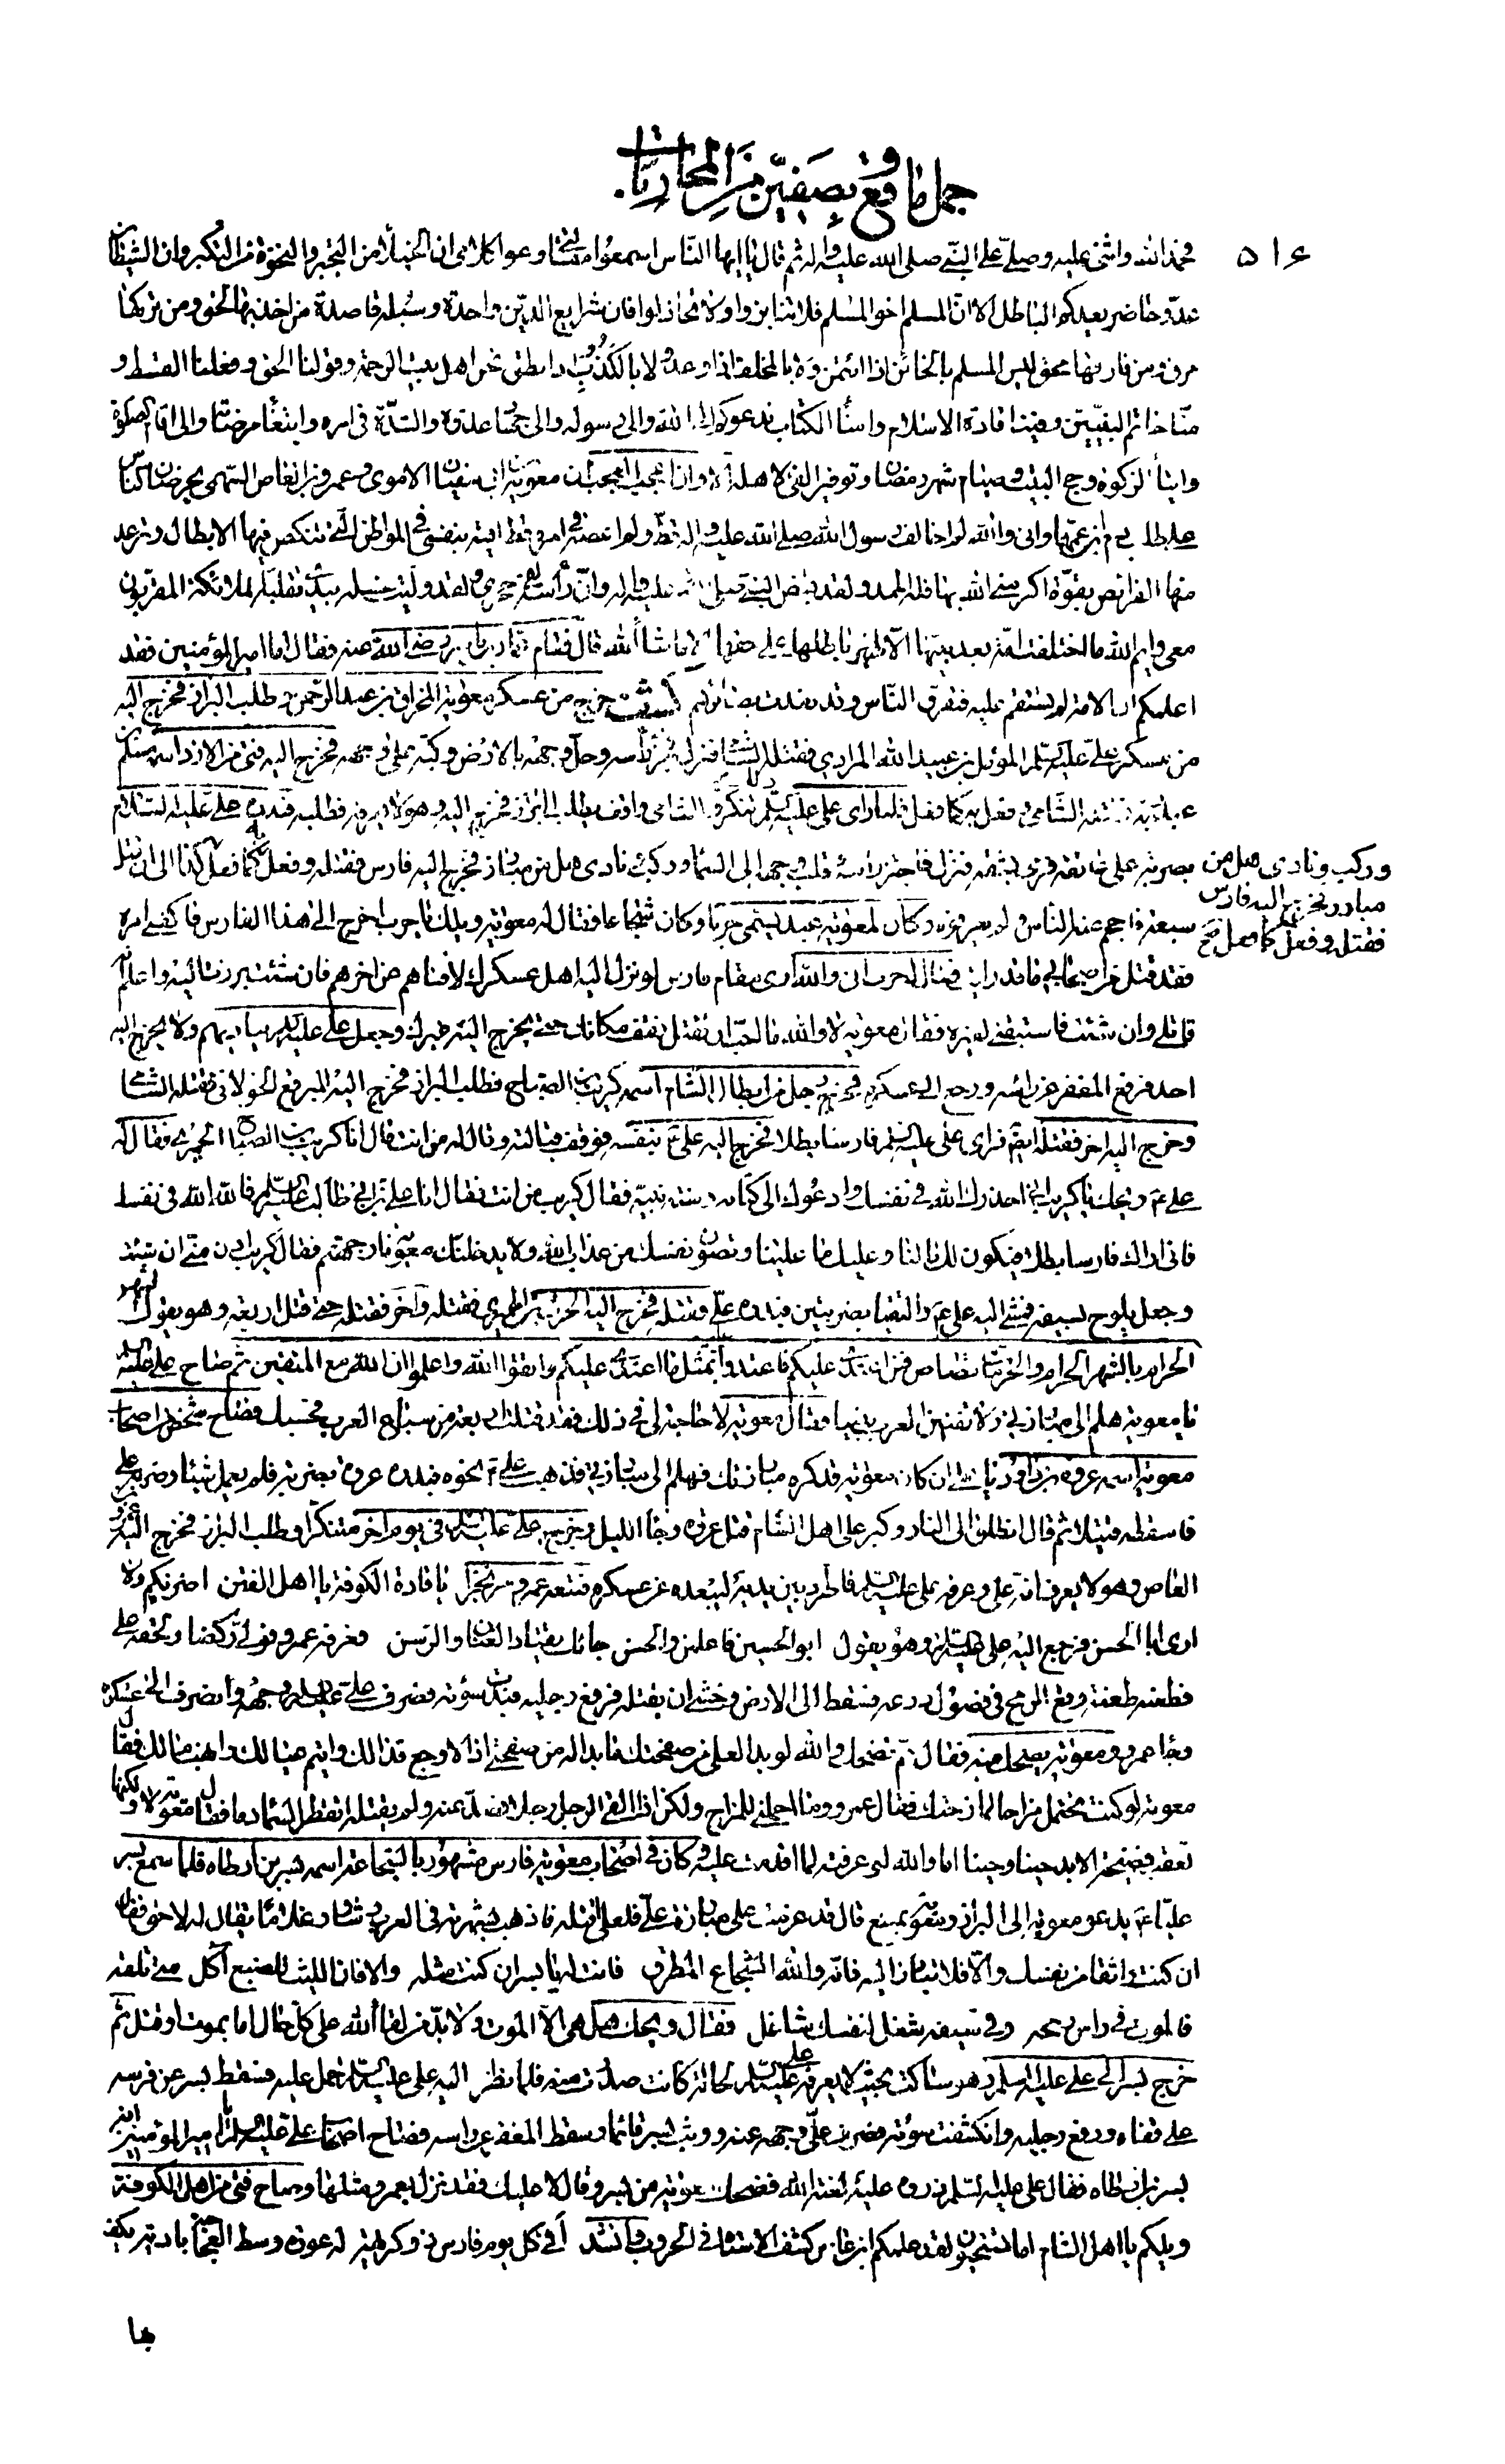 جمل ما وقع بصفين من المحاربات
٥١٤
فحمد الله واثنى عليه وصلى على النبي صلى الله عليه واله ثم قال يا ايها الناس اسمعوا مقالتي وعوا كلامي ان الخيلاء من التجبر والنخوة من التكبر وان الشيطان
عدو حاضر يعدكم الباطل الا ان المسلم اخو المسلم فلا تنابزوا ولا تخاذلوا فان شرايع الدين واحدة وسبله قاصدة من اخذ بها لحق ومن تركها
مرق ومن فارقها محق ليس المسلم بالخائن اذا ائتمن ولا بالمخلف اذا وعد ولا بالكذوب اذا نطق نحن اهل بيت الرحمة وقولنا الحق وفعلنا القسط و
منا خاتم النبيين وفينا قادة الاسلام وامناء الكتاب ندعوكم الى الله والى رسوله والى جهاد عدوه والشدة في امره وابتغاء مرضاته والى اقام الصلوة
وايتاء الزكوة وحج البيت وصيام شهر رمضان وتوفير الفئ لاهله الا وان اعجب العجب ان معوية ابن ابي سفيان الاموي وعمرو بن العاص السهمي يحرضان الناس
على طلب دم ابن عمهما واني والله لم اخالف رسول الله صلى الله عليه واله قط ولم اعصه في امر قط اقيه بنفسي في المواطن التي تنكص فيها الابطال وترعد
منها الفرائص بقوة اكرمني الله بها فله الحمد ولقد قبض النبي صلى الله عليه واله وان رأسه لفي حجري ولقد وليت غسله بيدي تقلبه الملائكة المقربون
معي وايم الله ما اختلفت امة بعد نبيها الا ظهر باطلها على حقها الا ما شاء الله قال فقام عمار بن ياسر رضي الله عنه فقال اما امير المؤمنين فقد
اعلمكم ان الامة لم يستقم عليه فتفرق الناس وقد نفذت بصائرهم خرج من عسكر معوية المخراق بن عبد الرحمن وطلب البراز فخرج اليه
من عسكر علي عليه السلم المؤمل بن عبيد الله المرادي فقتله الشامي فنزل فجز رأسه وحك وجهه بالارض وكبه على وجهه فخرج اليه فتى من الازد اسمه مسلم
عبد ربه فقتله الشامي وفعل به كما فعل فلما راى علي عليه السلم ذلك تنكر والشامي واقف يطلب البراز فخرج اليه وهو لا يعرفه فطلبه فبدره علي عليه السلام
بضربة على عاتقه فرمى بشقه فنزل فاجتز راسه وقلب وجهه الى السماء وركب ونادى هل من مبارز فخرج اليه فارس فقتله وفعل به كما فعل كذا الى ان قتل
وركب ونادى هل من
مبارز فخرج اليه فارس
فقتله وفعل كما فعل
سبعة فاحجم عنه الناس ولم يعرفوه وكان لمعوية عبد يسمى حربا وكان شجاعا فقال له معوية ويلك يا حرب اخرج الى هذا الفارس فاكفني امره
فقد قتل من اصحابي ما قد رايت فقال له حرب اني والله ارى مقام فارس لو نزل اليه اهل عسكرك لافناهم عن اخرهم فان شئت برزت اليه واعلم انه
قاتلي وان شئت فاستبقني لغيره فقال معوية لا والله ما احب ان تقتل فقف مكانك حتى يخرج اليه غيرك وجعل علي عليه السلم يناديهم ولا يخرج اليه
احد فرفع المغفر عن راسه ورجع الى عسكره فخرج رجل من ابطال الشام اسمه كريب بن الصباح فطلب البراز فخرج اليه المبرقع الخولاني فقتله الشامي
وخرج اليه اخر فقتله ايضا فراى علي عليه السلم فارسا بطلا فخرج اليه علي ع بنفسه فوقف قبالته وقال له من انت قال انا كريب بن الصباح الحميري فقال له
علي ع ويحك يا كريب اني احذرك الله في نفسك وادعوك الى كتابه وسنة نبيه فقال كريب من انت فقال انا علي بن ابي طالب عليه السلم فالله الله في نفسك
فاني اراك فارسا بطلا فيكون لك ما لنا وعليك ما علينا وتصون نفسك من عذاب الله ولا يدخلنك معوية نار جهنم فقال كريب ادن مني ان شئت
وجعل يلوح بسيفه فمشى اليه علي ع والتقيا بضربتين فبدره علي فقتله فخرج اليه الحرث الحميري فقتله واخر فقتله حتى قتل اربعة وهو يقول الشهر
الحرام بالشهر الحرام والحرمات قصاص فمن اعتدى عليكم فاعتدوا بمثل ما اعتدى عليكم واتقوا الله واعلموا ان الله مع المتقين ثم صاح علي عليه السلم
يا معوية هلم الى مبارزتي ولا تفنين العرب بيننا فقال معوية لا حاجة لي في ذلك فقد قتلت اربعة من سباع العرب فحسبك فصاح شخص من اصحاب
معوية اسمه عروة بن داود يا علي ان كان معوية قد كره مبارزتك فهلم الى مبارزتي فذهب علي ع نحوه فبدره عروة بضربة فلم يعمل شيئا وضربه علي
فاسقطه قتيلا ثم قال انطلق الى النار وكبر على اهل الشام قتل عروة وجاء الليل وخرج علي عليه السلم في يوم اخر متنكرا وطلب البراز فخرج اليه عمرو بن
العاص وهو لا يعرف انه علي وعرفه علي عليه السلم فاطرد بين يديه ليبعده عن عسكره فتبعه عمرو مرتجزا يا قادة الكوفة يا اهل الفتن اضربكم ولا
ارى ابا الحسن فرجع اليه علي عليه السلم وهو يقول ابو الحسين فاعلمن والحسن جاءك يقتاد العنان والرسن فعرفه عمرو فولى ركضا ولحقه علي
فطعنه طعنة وقع الرمح في فضول درعه فسقط الى الارض وخشي ان يقتله فرفع رجليه فبدت سوءته فصرف علي عليه السلم وجهه وانصرف الى عسكره
وجاء عمرو ومعوية يضحك منه فقال مم تضحك والله لو بدا لعلي من صفحتك ما بدا له من صفحتي اذا لاوجع قذالك وايتم عيالك وانهب مالك فقال
معوية لو كنت تحتمل مزاحا لمازحتك فقال عمرو وما احملني للمزاح ولكن اذا لقي الرجل رجلا فصد عنه ولم يقتله اتقطر السماء دما فقال معوية لا ولكنها
تعقب فضيحة الابد حينا وحينا اما والله لو عرفته لما اقدمت عليه وكان في اصحاب معوية فارس مشهور بالشجاعة اسمه بسر بن ارطاه فلما سمع بسر
عليا ع يدعو معوية الى البراز ومعوية يمتنع قال قد عزمت على مبارزة علي فلعلي اقتله فاذهب بشهرته في العرب وشاور غلاما يقال له لاحق فقال
ان كنت واثقا من نفسك والا فلا تبرز اليه فانه والله الشجاع المطرق فانت له يا بسر ان كنت مثله والا فان الليث للضبع آكل متى تلقه
فالموت في راس رمحه وفي سيفه شغل لنفسك شاغل فقال ويحك هل هي الا الموت ولا بد من لقاء الله على كل حال اما بموت او قتل ثم
خرج بسر الى علي عليه السلم وهو ساكت بحيث لا يعرفه علي عليه السلم لحالة كانت صدرت منه فلما نظر اليه علي عليه السلم حمل عليه فسقط بسر عن فرسه
على قفاه ورفع رجليه وانكشفت سوءته فصرف علي وجهه عنه ووثب بسر قائما وسقط المغفر عن راسه فصاح اصحاب علي عليه السلم يا امير المؤمنين انه
بسر بن ارطاه فقال علي عليه السلم ذروه عليه لعنة الله فضحك معوية من بسر وقال لا عليك فقد نزل بعمرو مثلها وصاح فتى من اهل الكوفة
ويلكم يا اهل الشام اما تستحيون لقد علمكم ابن العاص كشف الاستاه في الحروب وانشد أفي كل يوم فارس ذو كريهة له عورة وسط العجاجة بادية يكف
بها